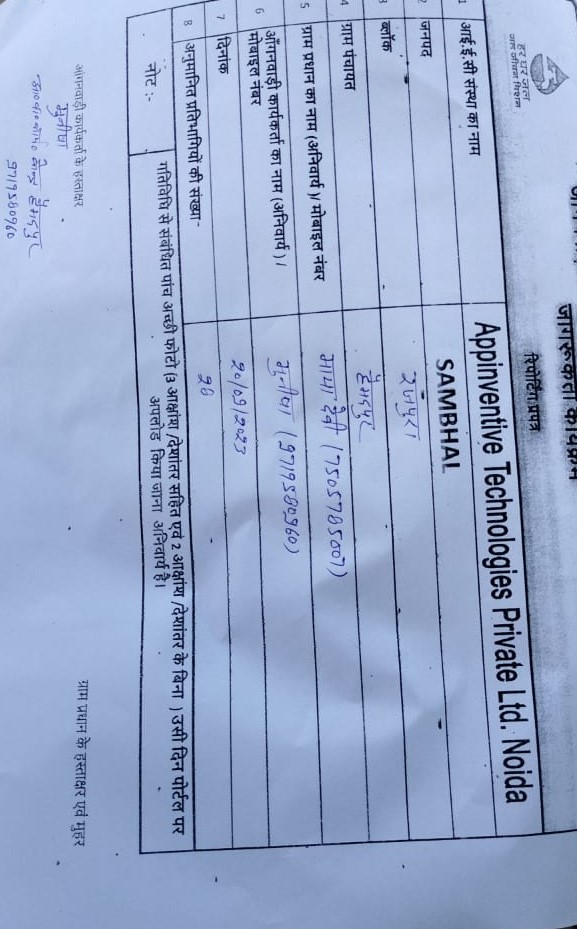 जागरूकता कार्यक्रम
हर घर जल
जल जीवन मिशन
रिपोर्टिंग प्रपत्र
1 आई.ई.सी संस्था का नाम Appinventive Technologies Private Ltd. Noida
2 जनपद SAMBHAL
3 ब्लॉक रजपुरा
4 ग्राम पंचायत हैमदपुर
5 ग्राम प्रधान का नाम (अनिवार्य )/ मोबाइल नंबर माया देवी (7505785007)
6 आँगनवाड़ी कार्यकर्ता का नाम (अनिवार्य )/
मोबाइल नंबर मुनीषा (9719580960)
7 दिनांक 20/09/2023
8 अनुमानित प्रतिभागियों की संख्या- 20
नोट :- गतिविधि से संबंधित पांच अच्छी फोटो (3 आक्षांश /देशांतर सहित एवं 2 आक्षांश /देशांतर के बिना ) उसी दिन पोर्टल पर
अपलोड किया जाना अनिवार्य है।
आँगनवाड़ी कार्यकर्ता के हस्ताक्षर ग्राम प्रधान के हस्ताक्षर एवं मुहर
मुनीषा
हैमदपुर
9719580960